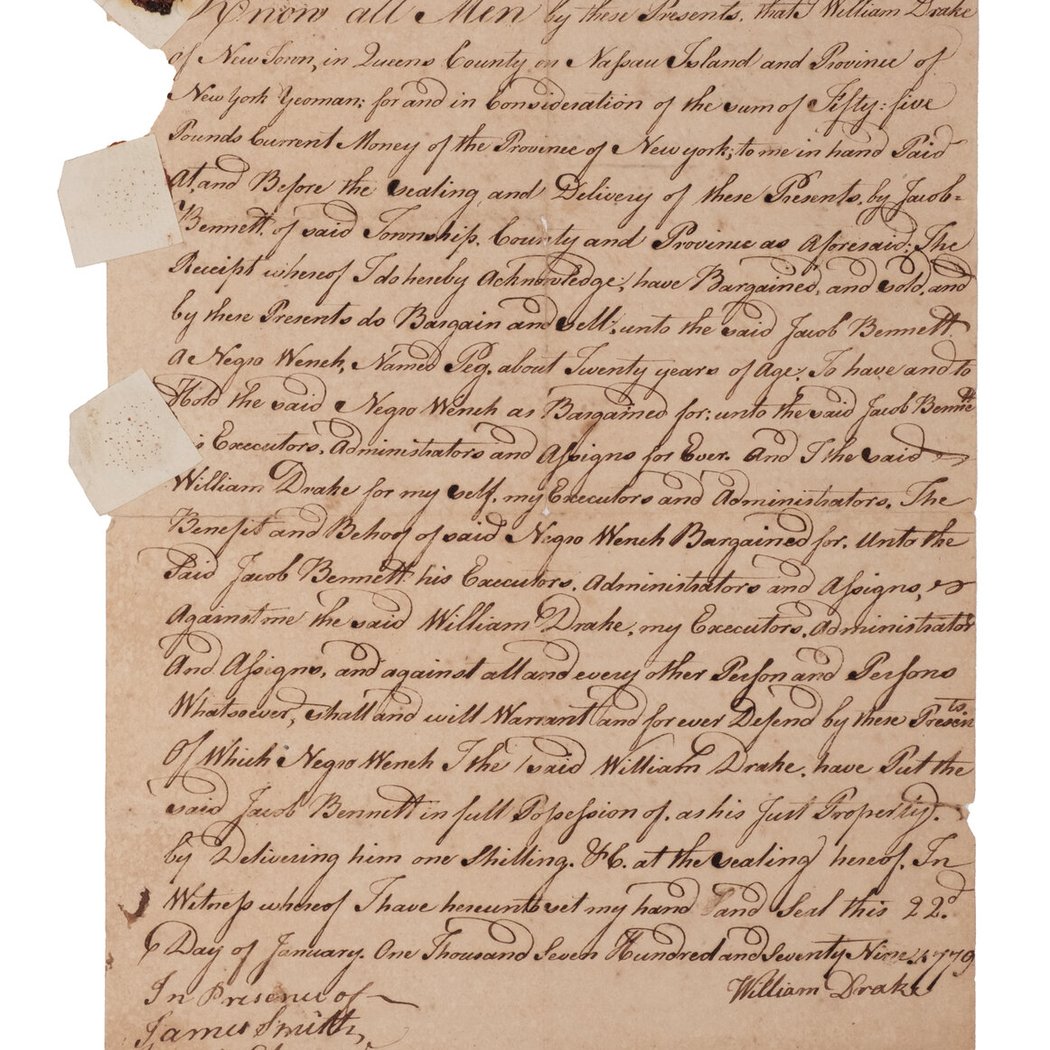 Know all Men by these Presents, that I William Drake
of New Town, in Queens County on Nassau Island and Province of
New York Yeoman; for and in Consideration of the sum of Fifty-five
Pounds Current Money of the Province of New york; to me in hand Paid
At, and Before the sealing and Delivery of these Presents, by Jacob-
Bennett, of said Township, County and Province as Aforesaid; The
Receipt whereof I do hereby Acknowledge; have Bargained, and sold, and
by these Presents do Bargain and sell; unto the said Jacob Bennett
A Negro Wench, Named Peg, about Twenty years of Age. To have and to
Hold the said Negro Wench as Bargained for; unto the said Jacob Bennett
is Executors, Administrators and Assigns for Ever. And I the said
William Drake for my self, my Executors and Administrators, The
Benefit and Behoof of said Negro Wench Bargained for. Unto the
said Jacob Bennett his Executors, Administrators and Assigns,
Against me the said William Drake, my Executors, Administrators
And Assigns, and against all and every other Person and Persons
Whatsoever, shall and will Warrant and for ever Defend by these Presents
Of Which Negro Wench I the said William Drake, have Put the
said Jacob Bennett in full Possession of, as his Just Property,
by Delivering him one shilling, &C. at the sealing hereof. In
Witness whereof I have hereunto set my hand and Seal this 22d.
Day of January, One Thousand Seven Hundred and Seventy Nine, 1779
In Presence of William Drake
James Smith,